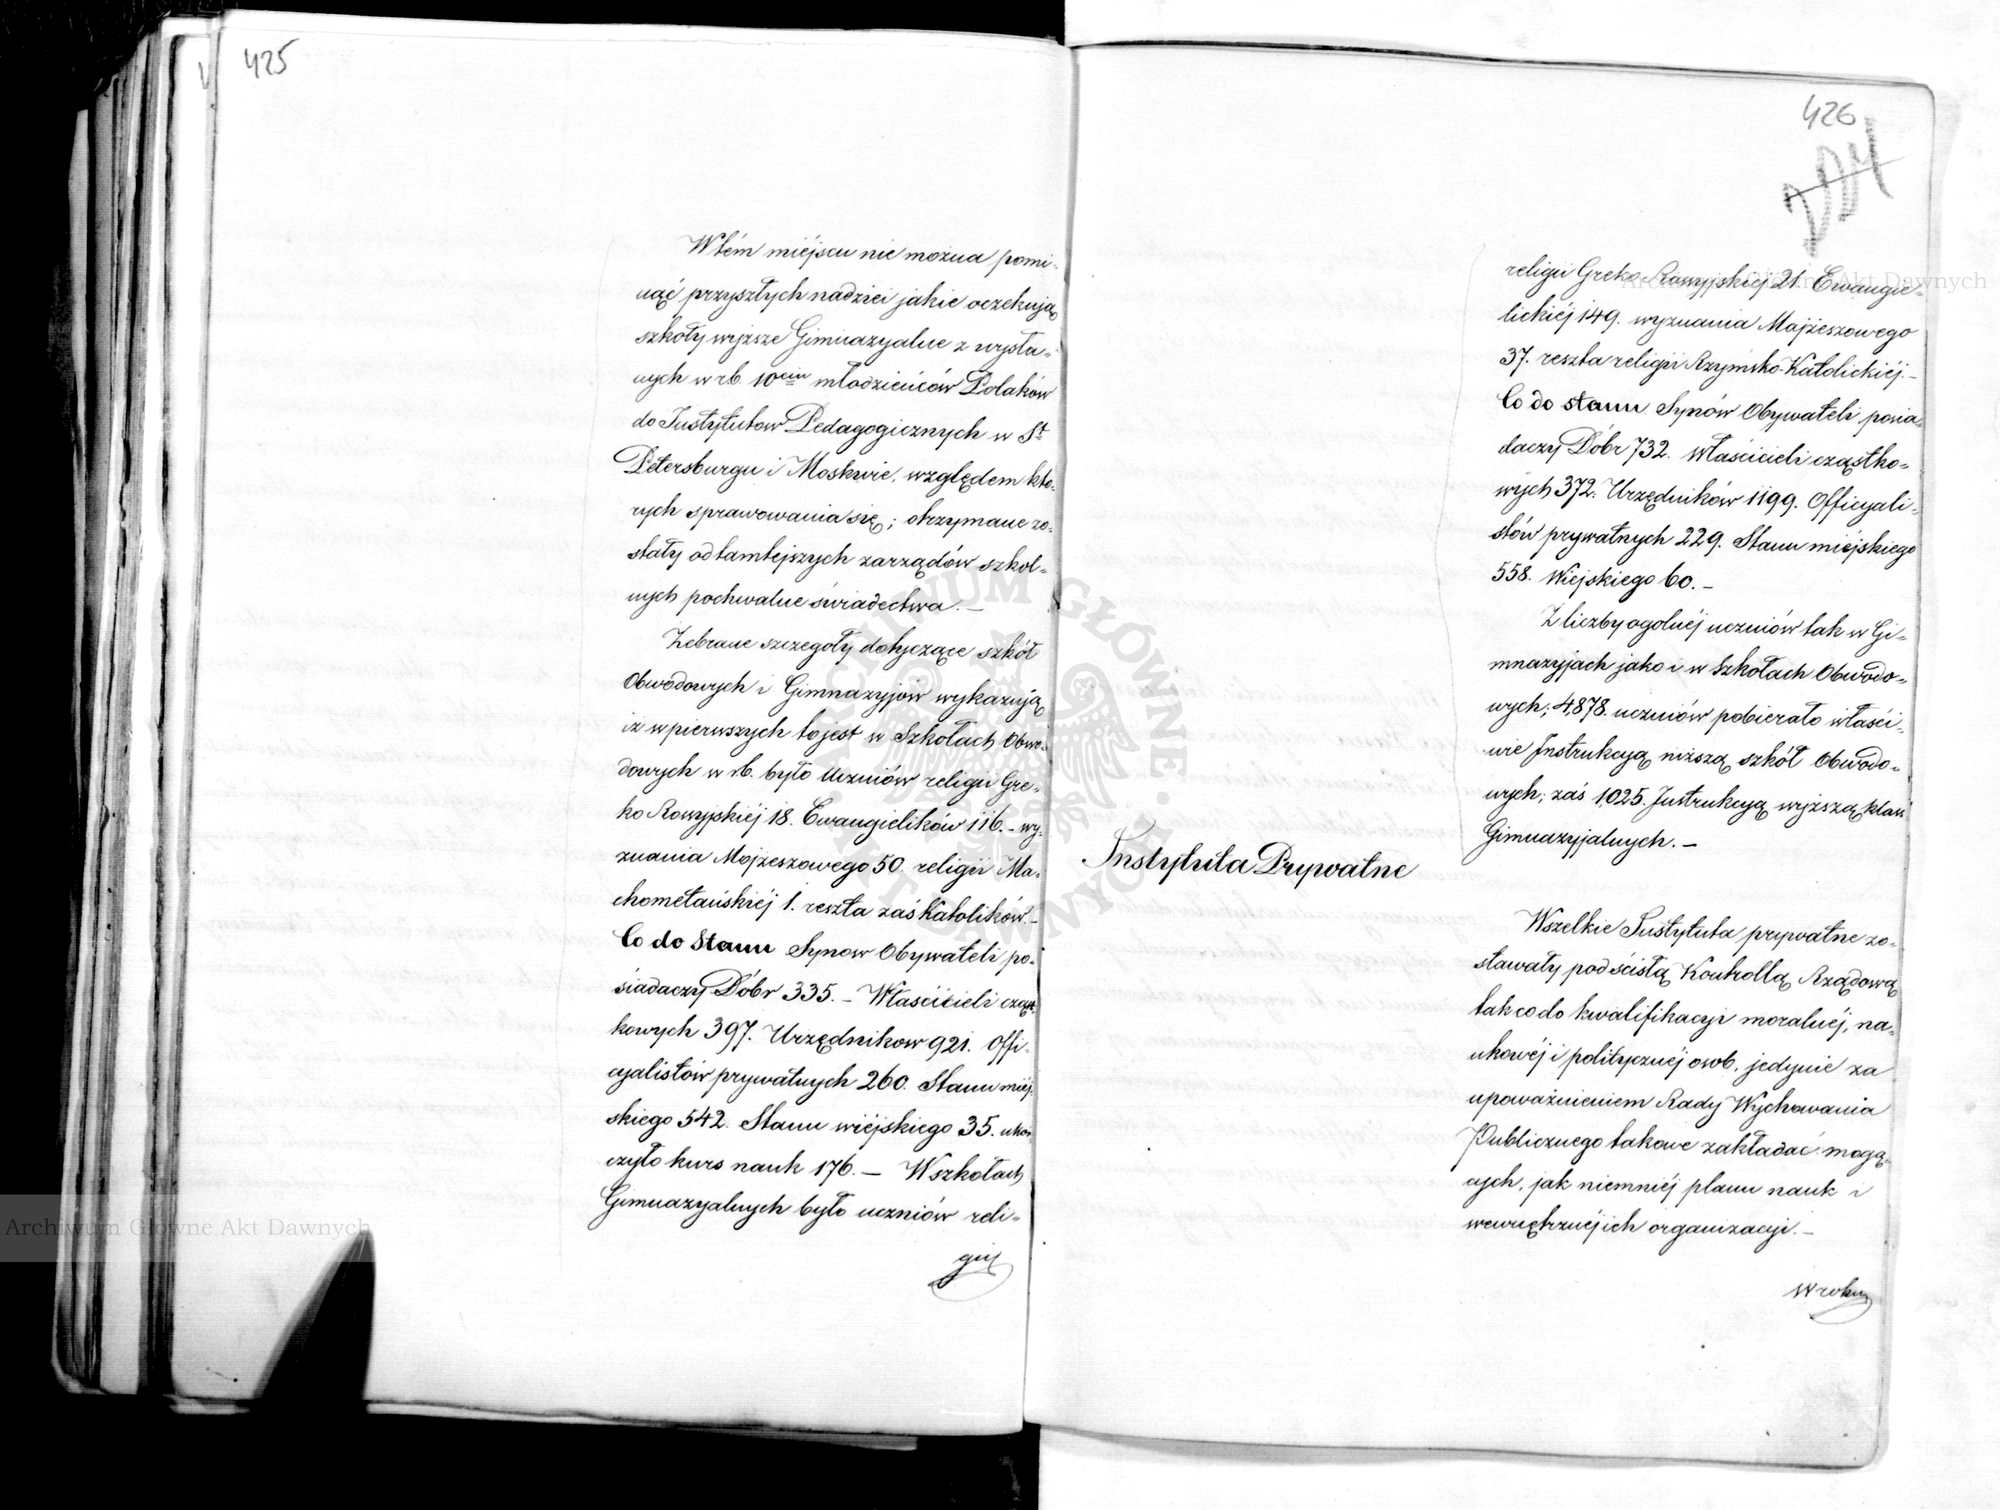 425
W tém miéjscu nie można pomi-
nąć przyszłych nadziei jakie oczekują
szkoły wyższe Gimnazyalne z wysła-
nych w rb. 10ciu młodzieńców Polaków
do Instytutow Pedagogicznych w St.
Petersburgu i Moskwie, względem któ-
rych sprawowania się; otrzymane zo-
stały od tamtejszych zarządów szkol-
nych pochwalne świadectwa. –
Zebrane szczegóły dotyczące szkół
Obwodowych i Gimnazyjów wykazują
iż w pierwszych to jest w Szkołach Obwo-
dowych w rb. było Uczniów religii Gre-
ko Rossyjskiéj 18. Ewangielików 116. – wy-
znania Mojżeszowego 50. religii Ma-
chometańskiéj 1. reszta zaś Katolików. –
Co do Stanu Synow Obywateli po-
siadaczy Dóbr 335. – Właścicieli cząst-
kowych 397. Urzędnikow 921. Offi-
cyalistów prywatnych 260. Stanu miej-
skiego 542. Stanu wiéjskiego 35. ukoń
czyło kurs nauk 176. – W szkołach
Gimnazyalnych było uczniów reli-
gii
426
religii Greko-Rossyjskiéj 21. Ewangie-
lickiéj 149. wyznania Mojżeszowego
37. reszta religii Rzymsko-Katolickiéj. –
Co do stanu Synów Obywateli posia-
daczy Dóbr 732. Właścicieli cząstko-
wych 372. Urzędników 1199. Officyali-
stów prywatnych 229. Stanu miéjskiego
558. Wiejskiego 60. –
Z liczby ogolnéj uczniów tak w Gi-
mnazyjach jako i w Szkołach Obwodo-
wych; 4,878. uczniów pobierało właści-
wie Instrukcyą niższą szkół Obwodo-
wych; zaś 1,025. Instrukcyą wyższą klass
Gimnazyjalnych. –
Instytuta Prywatne
Wszelkie Instytuta prywatne zo-
stawały pod ścisłą Kontrollą Rządową
tak co do kwalifikacyi moralnéj, na-
ukowéj i politycznéj osob, jedynie za
upoważnieniem Rady Wychowania
Publicznego takowe zakładać mogą-
cych, jak niemniéj planu nauk i
wewnętrznéj ich organizacyi. –
W roku
Archiwum Główne Akt Dawnych
Archiwum Główne Akt Dawnych
ARCHIWUM GŁÓWNE AKT DAWNYCH